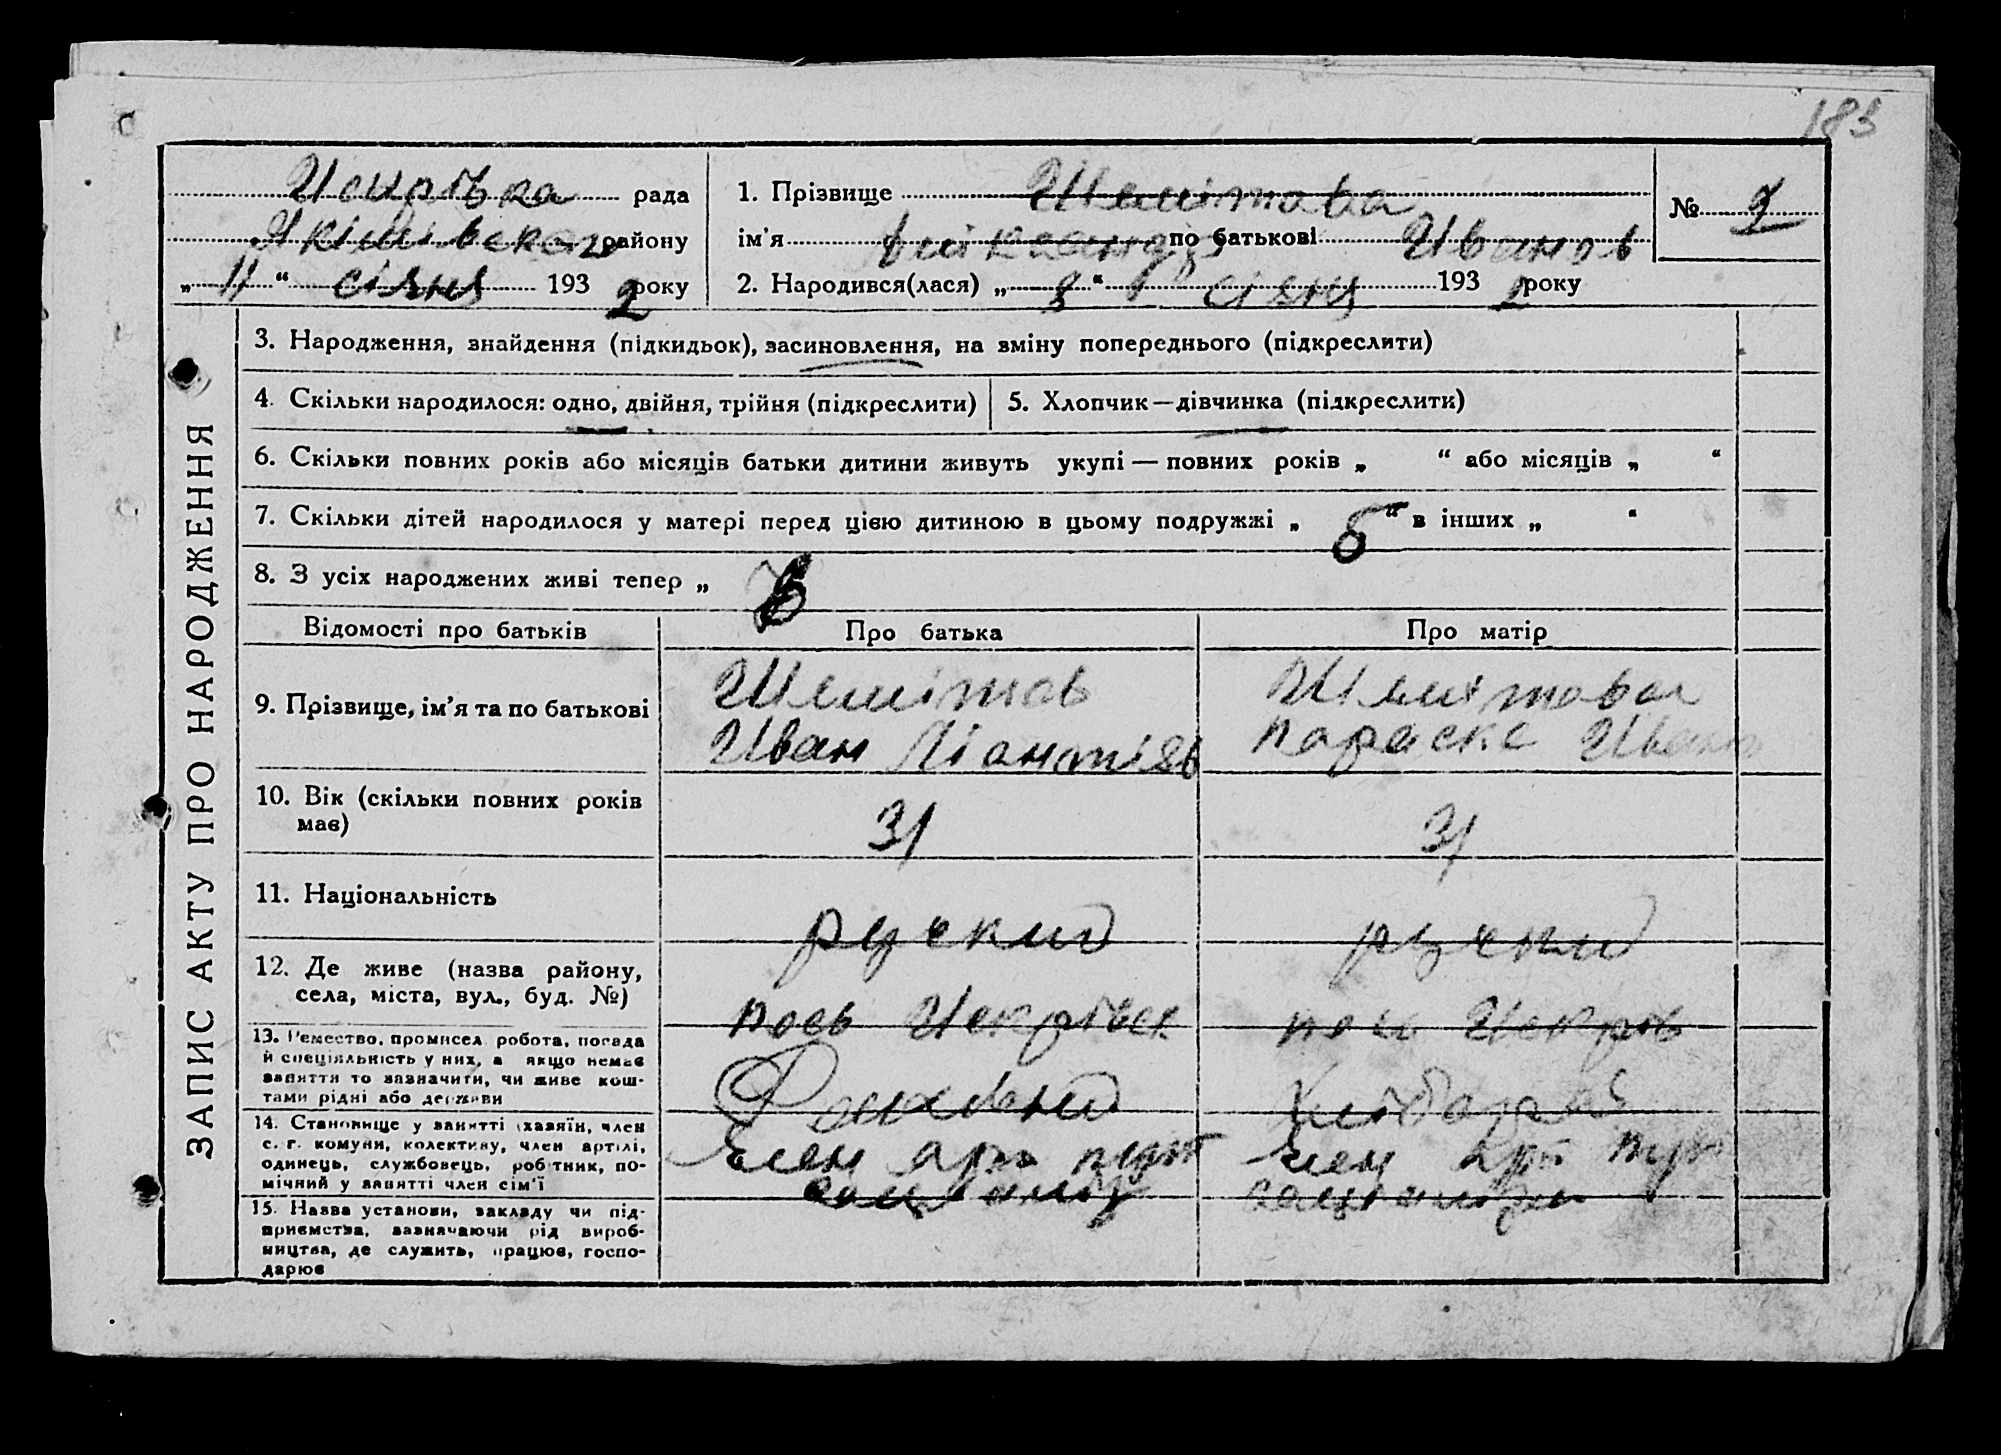 183
Искрівка рада
Якімівского району
„ 11 “ січня 1932 року
1. Прізвище Шемітова
ім'я по батькові Иванов
2. Народився(лася) „ 8 “ січня 1932 року
№ 2
ЗАПИС АКТУ ПРО НАРОДЖЕННЯ
3. Народження, знайдення (підкидьок), засиновлення, на зміну попереднього (підкреслити)
4. Скільки народилося: одно, двійня, трійня (підкреслити)
5. Хлопчик—дівчинка (підкреслити)
6. Скільки повних років або місяців батьки дитини живуть укупі — повних років „ “ або місяців „ “
7. Скільки дітей народилося у матері перед цією дитиною в цьому подружжі „ б “ в інших „ “
8. З усіх народжених живі тепер „
Відомості про батьків Про батька Про матір
9. Прізвище, ім'я та по батькові
Шемітов
Иван
Шемітова
Параска Иван
10. Вік (скільки повних років
має)
31 31
11. Національність
руский руский
12. Де живе (назва району,
села, міста, вул., буд. №)
13. Ремество, промисел робота, посада
й спеціяльність у них, а якщо немає
заняття то зазначити, чи живе кош-
тами рідні або держави
Хліборо
14. Становище у занятті (хазяїн, член
с. г. комуни, колективу, член артілі,
одинець, службовець, робітник, по-
мічний у занятті член сім'ї
член арт
член арт
15. Назва установи, закладу чи під-
приємства, зазначаючи рід вироб-
ництва, де служить, працює, госпо-
дарює